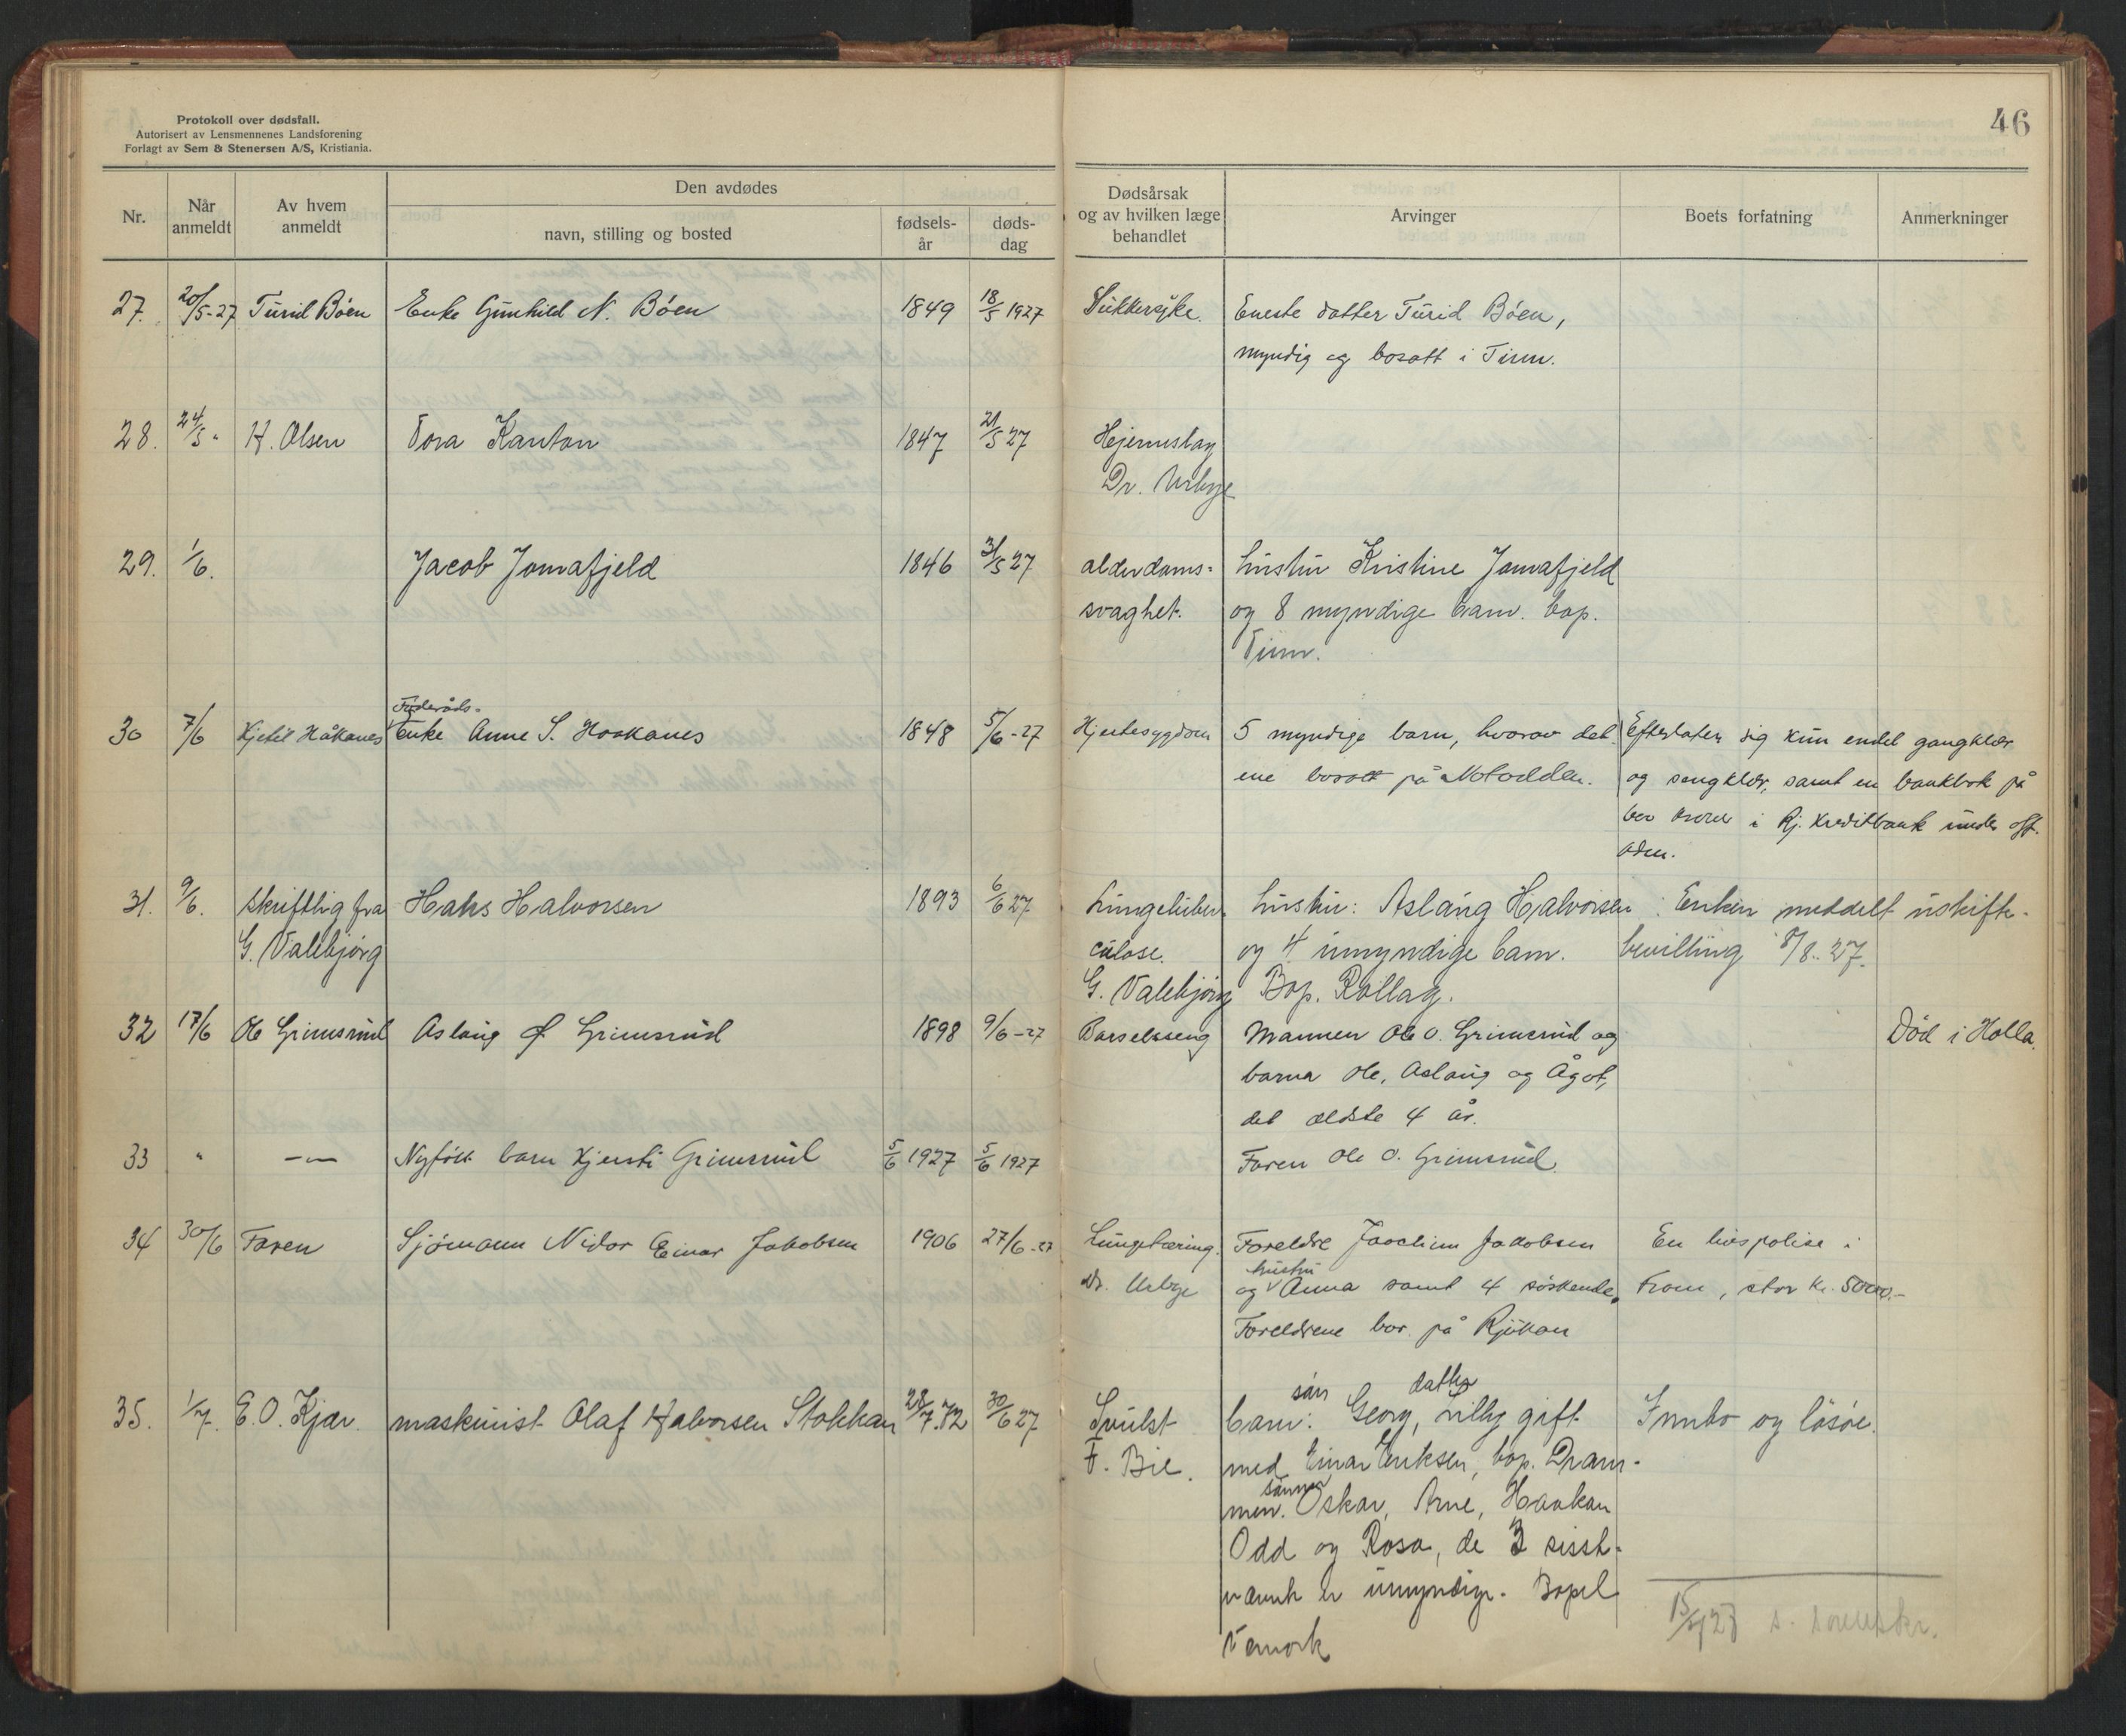 Protokoll over dødsfall.
Autorisert av Lensmennenes Landsforening
Forlagt av Sem & Stenersen A/S, Kristiania.
46
Nr.
Når anmeldt
Av hvem anmeldt
Den avdødes
navn, stilling og bosted
fødsels-år
døds-dag
Dødsårsak og av hvilken læge behandlet
Arvinger
Boets forfatning
Anmerkninger
27. 20/5-27 Turid Böen Enke Gunhild N. Böen 1849 18/5 1927 Sukkersyke. Eneste datter Turid Böen,
myndig og bosatt i Tinn.
28. 24/5 " H. Olsen Tora Kanton 1847 21/5 27 Hjerneslag
Dr. Urbye
29. 1/6. Jacob Jomafjeld 1846 31/5 27 alderdoms- hustru Kristine Jomafjeld
svaghet. og 8 myndige barn. bop.
Tinn.
Föderåds-
30 7/6 Kjetil Håkanes Enke Anne S. Haakanes 1848 5/6-27 Hjertesygdom 5 myndige barn, hvorav det Efterlater sig kun endel gangklær
ene bosatt på Notodden. og sengklær, samt en bankbok på
i Rj. Kreditbank under off.
adm.
31. 9/6. Skriftlig fra Hans Halvorsen 1893 6/6 27 Lungetuber- hustru: Aslaug Halvorsen Enken meddelt uskifte-
G. Valebjörg culose. og 4 umyndige barn. bevilling 8/8. 27.
G. Valebjörg Bop. Rollag.
32 17/6 Ole Grimsrud Aslaug Grimsrud 1898 9/6-27 Barselseng Mannen Ole O. Grimsrud og Död i Holla.
barna Ole, Aslaug og Ågot,
det ældste 4 år.
33 " -"- Nyfött barn Kjersti Grimsrud 5/6 1927 5/6 1927 Faren Ole O. Grimsrud.
34 30/6 Faren Sjömann Nidar Einar Jakobsen 1906 27/6-27 Lungetæring. Foreldre Joachim Jakobsen En livspolise i
hustru
Dr. Urbye og Anna samt 4 söskende. Fram, stor kr. 5000.-
Foreldrene bor på Rjukan
sön datter
35. 1/7. E. O. Kjær. maskinist Olaf Halvorsen Stokkan 28/7.72 30/6 27 Svulst barn: Georg, Lilly gift Innbo og lösöre.
F. Bie. med Einar Eriksen, bop. Dram-
sönner
men. Oskar, Arne, Haakan
Odd og Rosa, de 3 sisst-
nævnte er umyndige. Bopel
Vemork